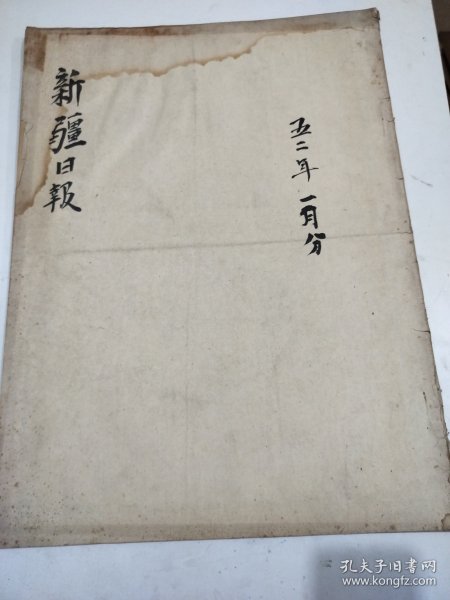 新疆日報
五二年 一月分
孔夫子旧书网
www.kongfz.com